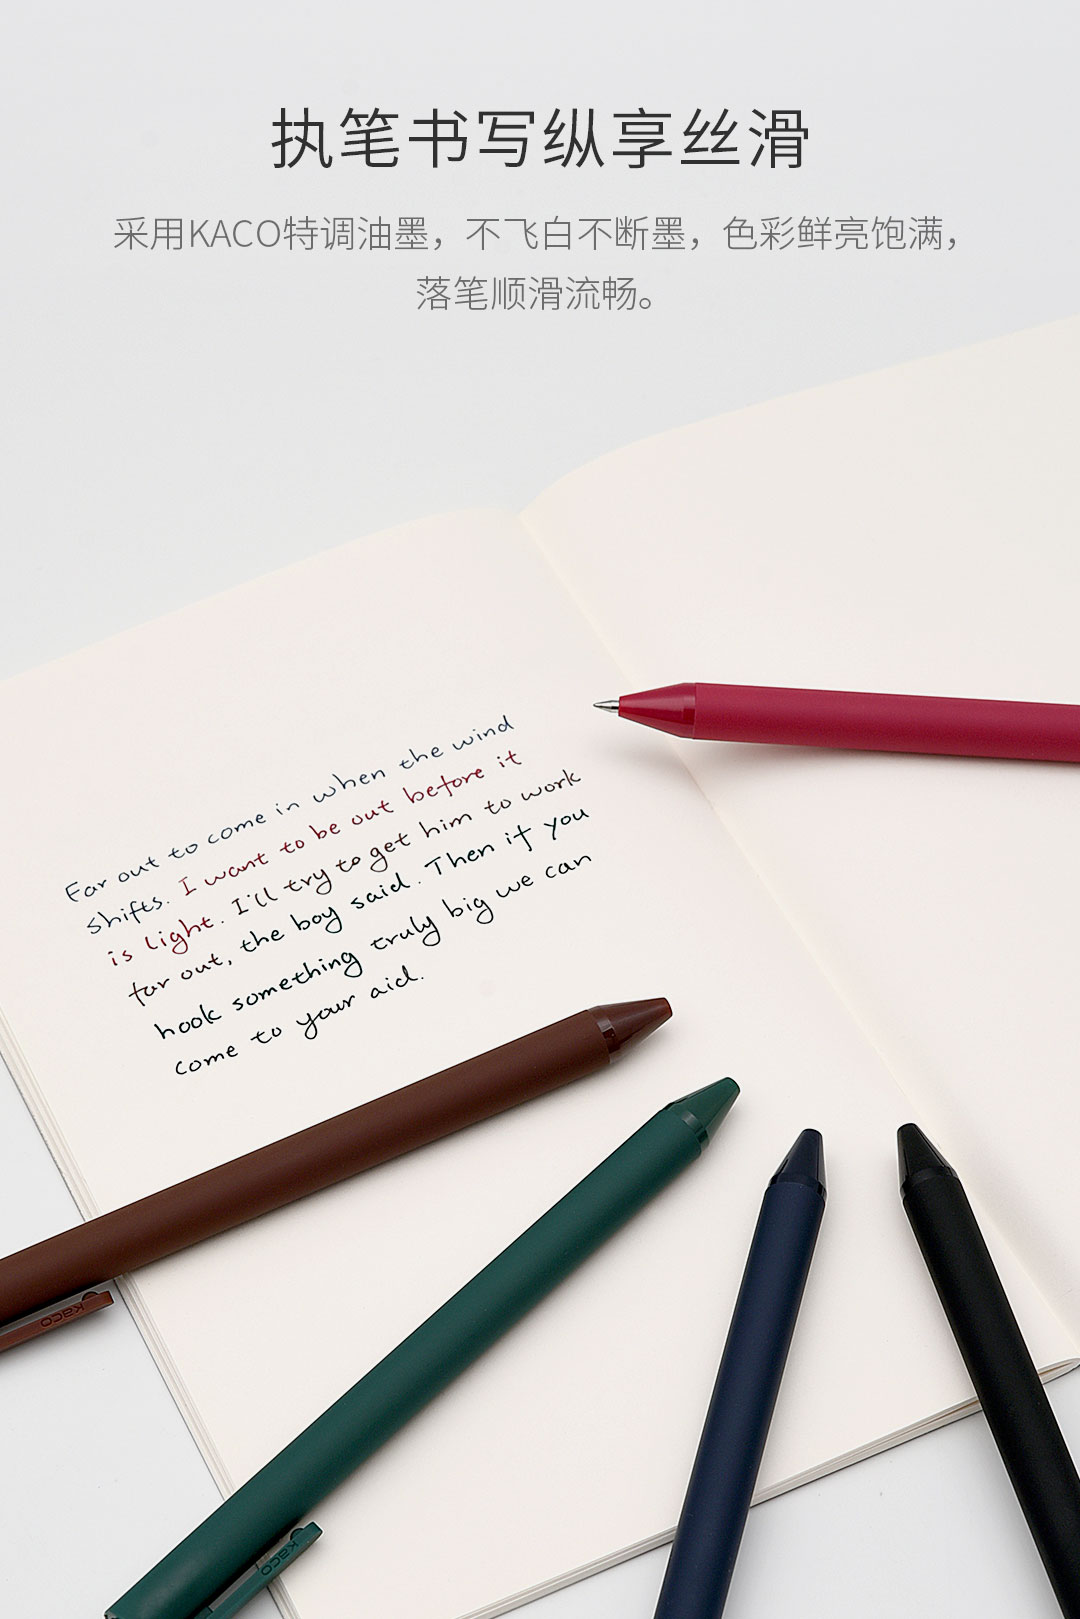 执笔书写纵享丝滑
采用KACO特调油墨，不飞白不断墨，色彩鲜亮饱满，
落笔顺滑流畅。
Far out to come in when the wind
shifts. I want to be out before it
is light. I'll try to get him to work
far out, the boy said. Then if you
hook something truly big we can
come to your aid.
KACO
KACO